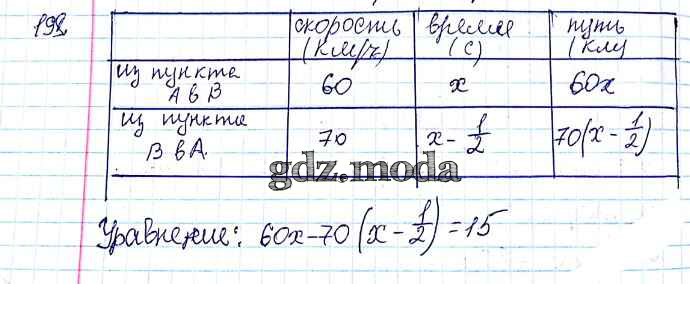 198.
скорость (км/ч) время (с) путь (км)
из пункта А в В 60 x 60x
из пункта В в А. 70 x - 1/2 70(x - 1/2)
gdz.moda
Уравнение: 60x - 70(x - 1/2) = 15